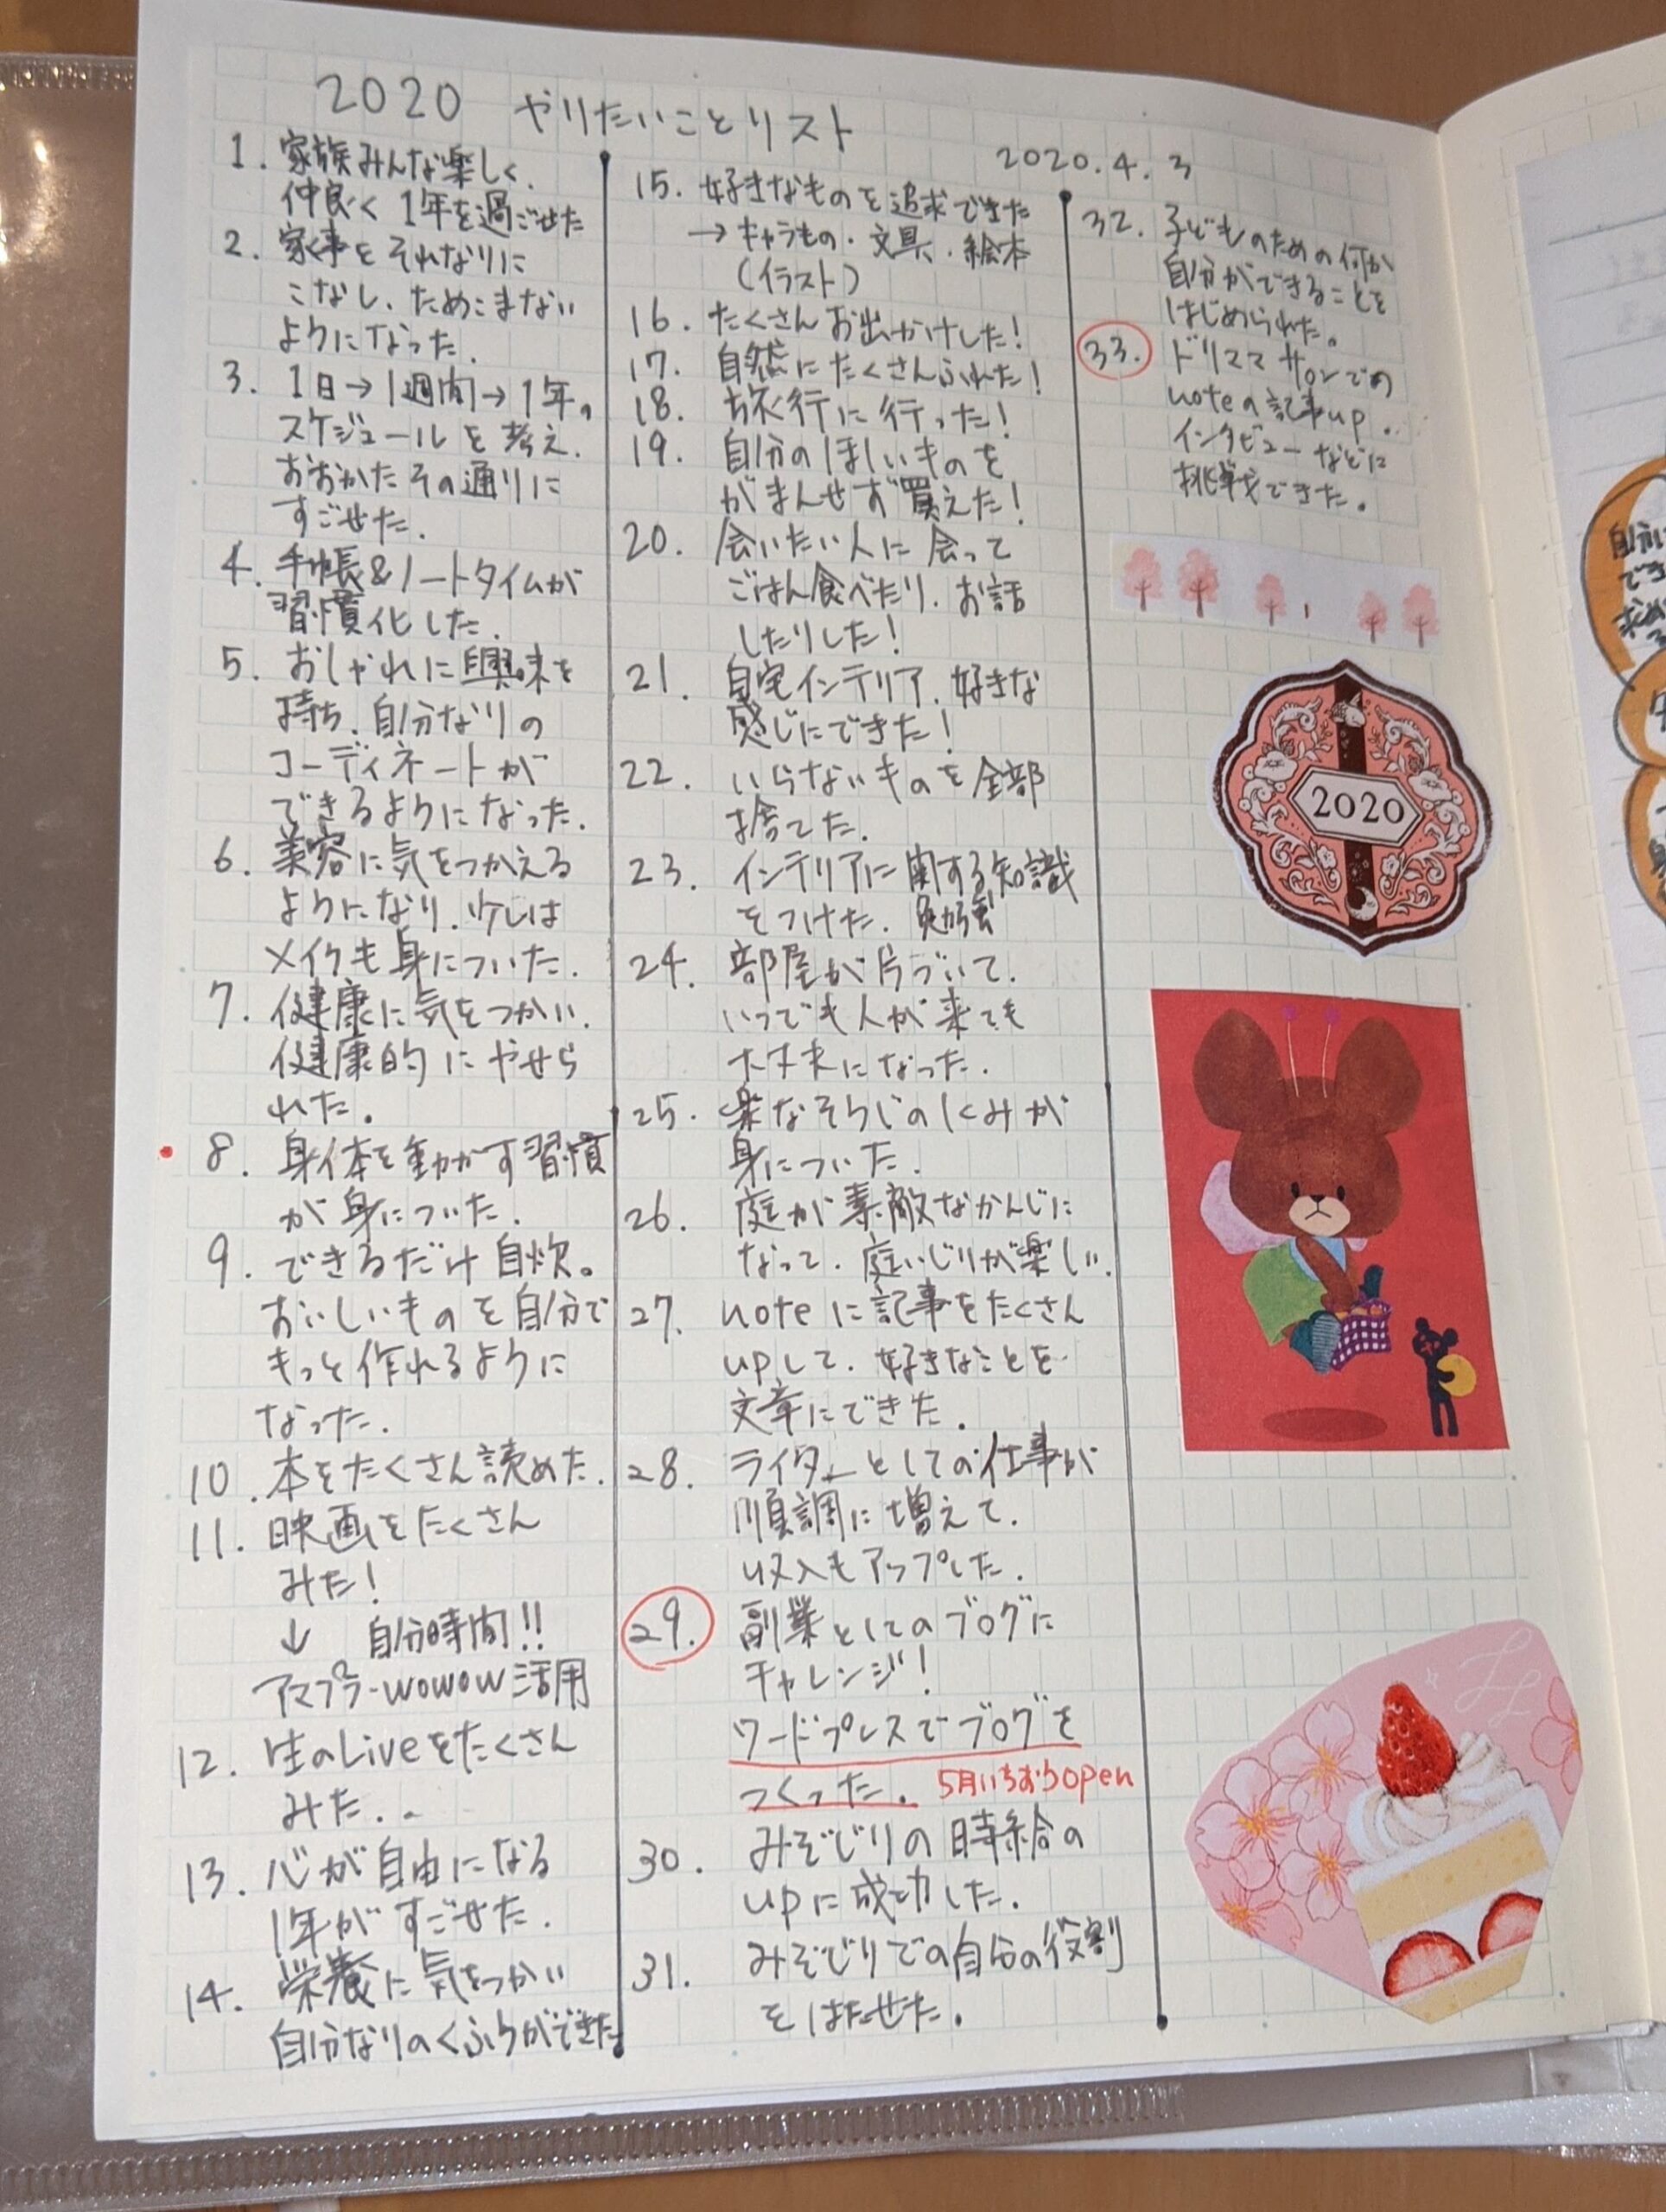 2020 やりたいことリスト
2020.4.3
1. 家族みんな楽しく、
仲良く 1年を過ごせた
2. 家事をそれなりに
こなし、ためこまない
ようになった.
3. 1日→1週間→1年の
スケジュールを考え.
おおかたその通りに
すごせた.
4. 手帳&ノートタイムが
習慣化した.
5. おしゃれに興味を
持ち、自分なりの
コーディネートが
できるようになった.
6. 美容に気をつかえる
ようになり、少しは
メイクも身についた.
7. 健康に気をつかい.
健康的にやせら
れた。
8. 身体を動かす習慣
が身についた.
9. できるだけ自炊。
おいしいものを自分で
もっと作れるように
なった.
10. 本をたくさん読めた.
11. 映画をたくさん
みた!
↓ 自分時間!!
アマプラ・WOWOW活用
12. 生のLiveをたくさん
みた..
13. 心が自由になる
1年がすごせた.
14. 栄養に気をつかい
自分なりのくふうができた
15. 好きなものを追求できた
→キャラもの・文具・絵本
(イラスト)
16. たくさんお出かけした!
17. 自然にたくさんふれた!
18. 旅行に行った!
19. 自分のほしいものを
がまんせず買えた!
20. 会いたい人に会って
ごはん食べたり、お話
したりした!
21. 自宅インテリア、好きな
感じにできた!
22. いらないものを全部
捨てた.
23. インテリアに関する知識
をつけた. 勉強
24. 部屋が片づいて.
いつでも人が来ても
大丈夫になった.
25. 楽なそうじのしくみが
身についた.
26. 庭が素敵なかんじに
なって、庭いじりが楽しい.
27. noteに記事をたくさん
upして、好きなことを
文章にできた.
28. ライターとしての仕事が
順調に増えて.
収入もアップした.
29. 副業としてのブログに
チャレンジ!
ワードプレスでブログを
つくった. 5月いちおうopen
30. みぞじりの時給の
upに成功した.
31. みぞじりでの自分の役割
をはたせた.
32. 子どものための何か
自分ができることを
はじめられた。
33. ドリママサロンでの
noteの記事up.
インタビューなどに
挑戦できた。
2020
自分に
でき
求め